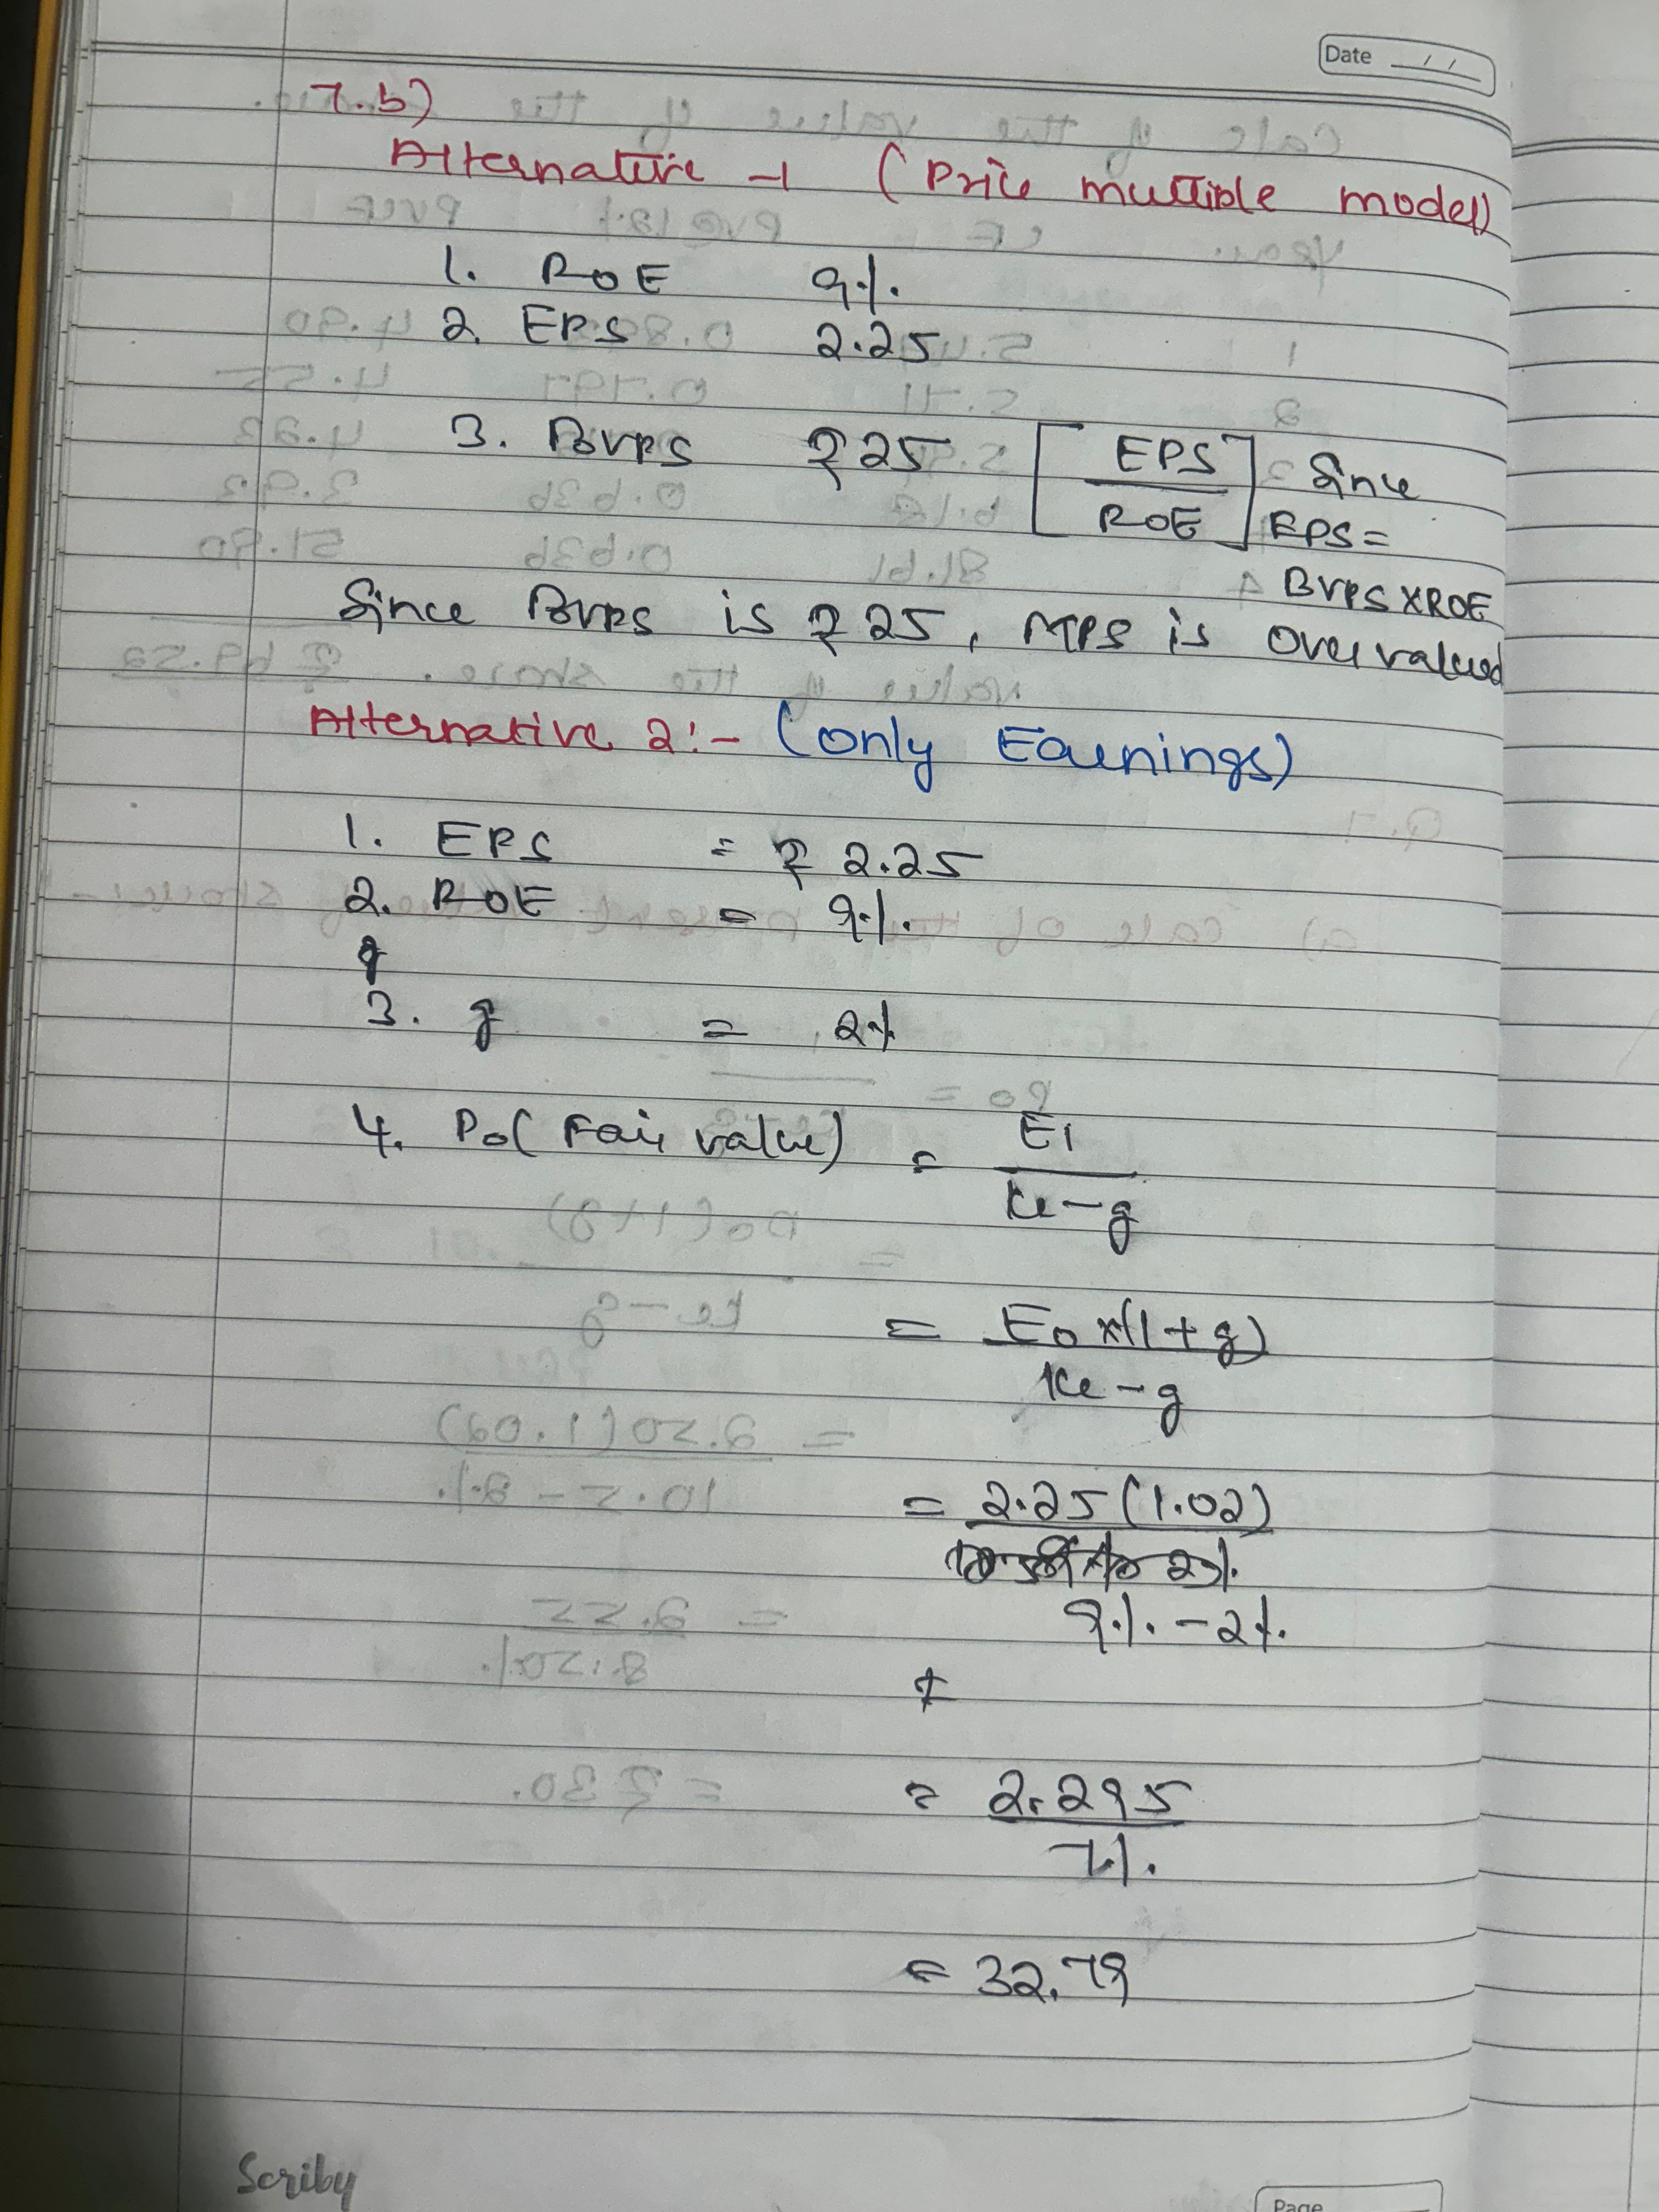 Date / /
7.b)
Alternative -1 (Price multiple model)
1. ROE 9%.
2. EPS 2.25
3. BVPS ₹25 [EPS/ROE] Since
EPS =
BVPS X ROE
Since BVPS is ₹25, MPS is Overvalued
Alternative 2:- (Only Earnings)
1. EPS = ₹ 2.25
2. ROE = 9%.
g
3. g = 2%
4. Po (Fair value) = E1
Ke-g
= Eo x (1+g)
Ke-g
= 2.25 (1.02)
9%. - 2%.
= 2.295
7%.
= 32.79
Scriby
Page